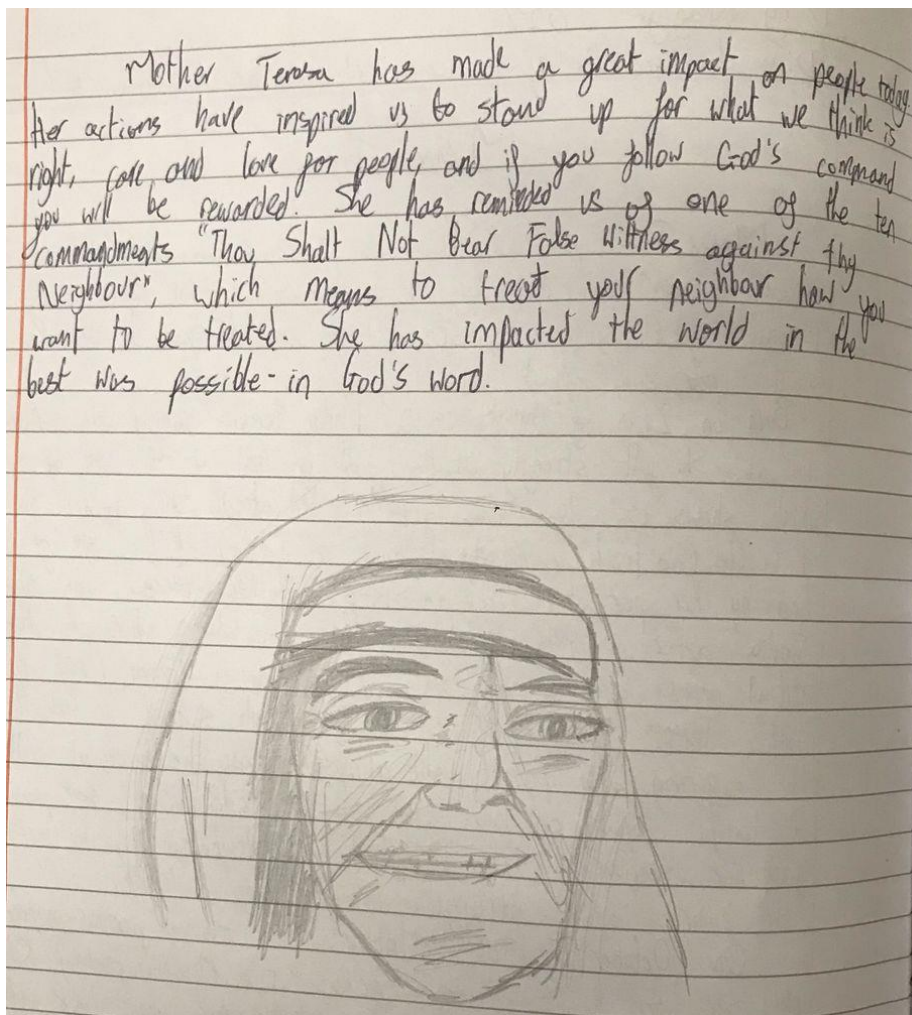 Mother Terasa has made a great impact on people today.
Her actions have inspired us to stand up for what we think is
right, care and love for people, and if you follow God's command
you will be rewarded. She has reminded us of one of the ten
commandments "Thou Shalt Not Bear False Wittness against thy
Neighbour", which means to treat your neighbour how you
want to be treated. She has impacted the world in the
best was possible - in God's word.